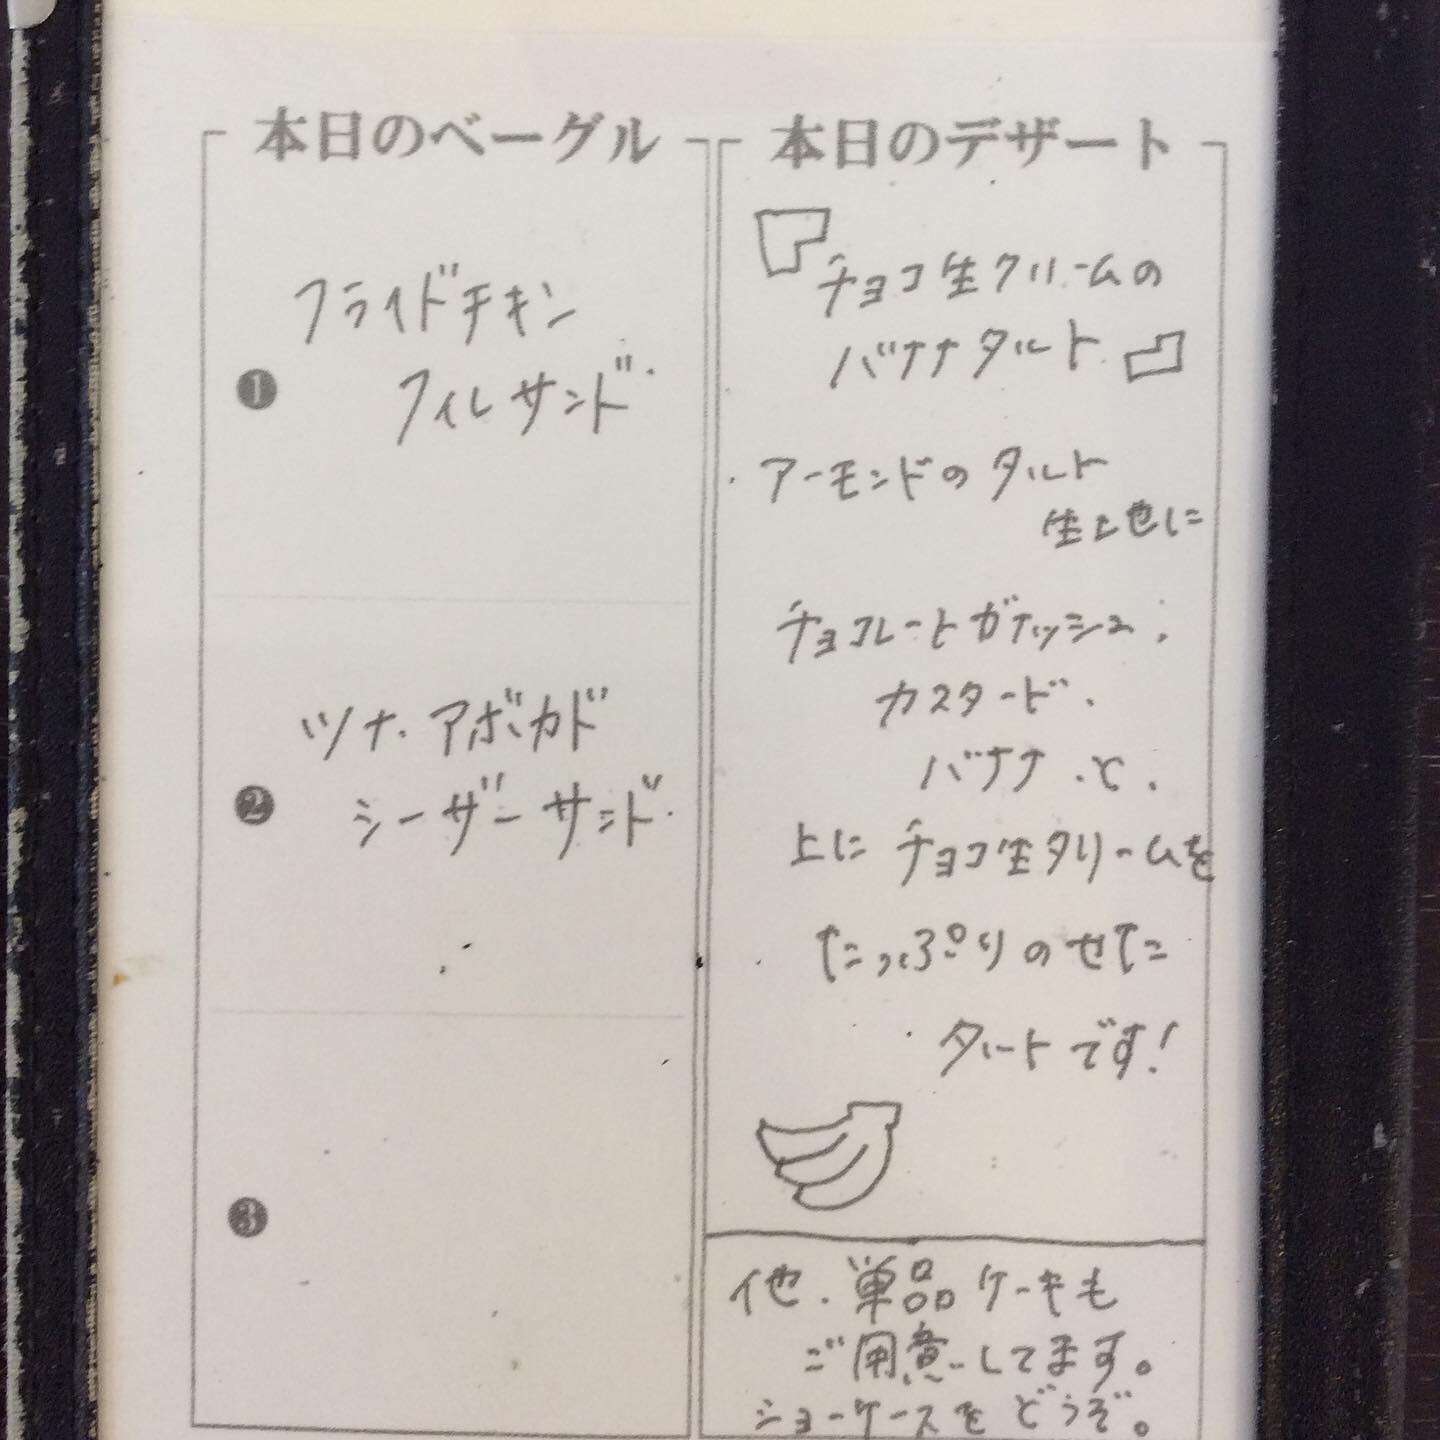 本日のベーグル
❶
フライドチキン
フィレサンド.
❷
ツナ・アボカド
シーザーサンド.
❸
本日のデザート
「チョコ生クリームの
バナナタルト」
・アーモンドのタルト
生地に
チョコレートガナッシュ、
カスタード、
バナナ、と、
上にチョコ生クリームを
たっぷりのせた
タルトです!
他、単品ケーキも
ご用意してます。
ショーケースをどうぞ。